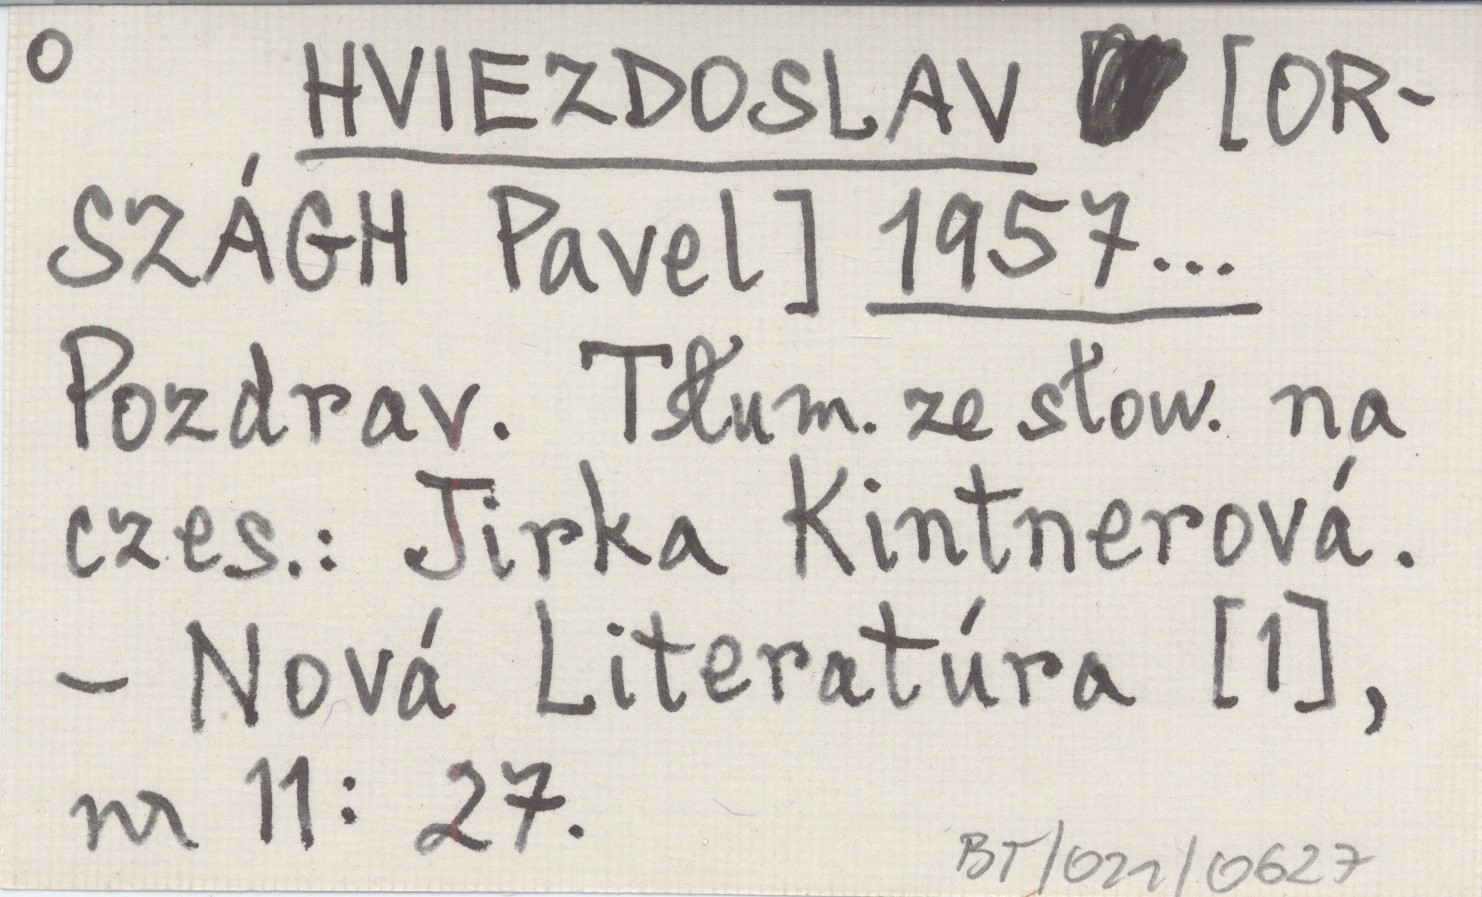 O HVIEZDOSLAV [OR-
SZÁGH Pavel] 1957...
Pozdrav. Tłum. ze słow. na
czes.: Jirka Kintnerová.
- Nová Literatúra [1],
nr 11: 27.
BT/021/0627